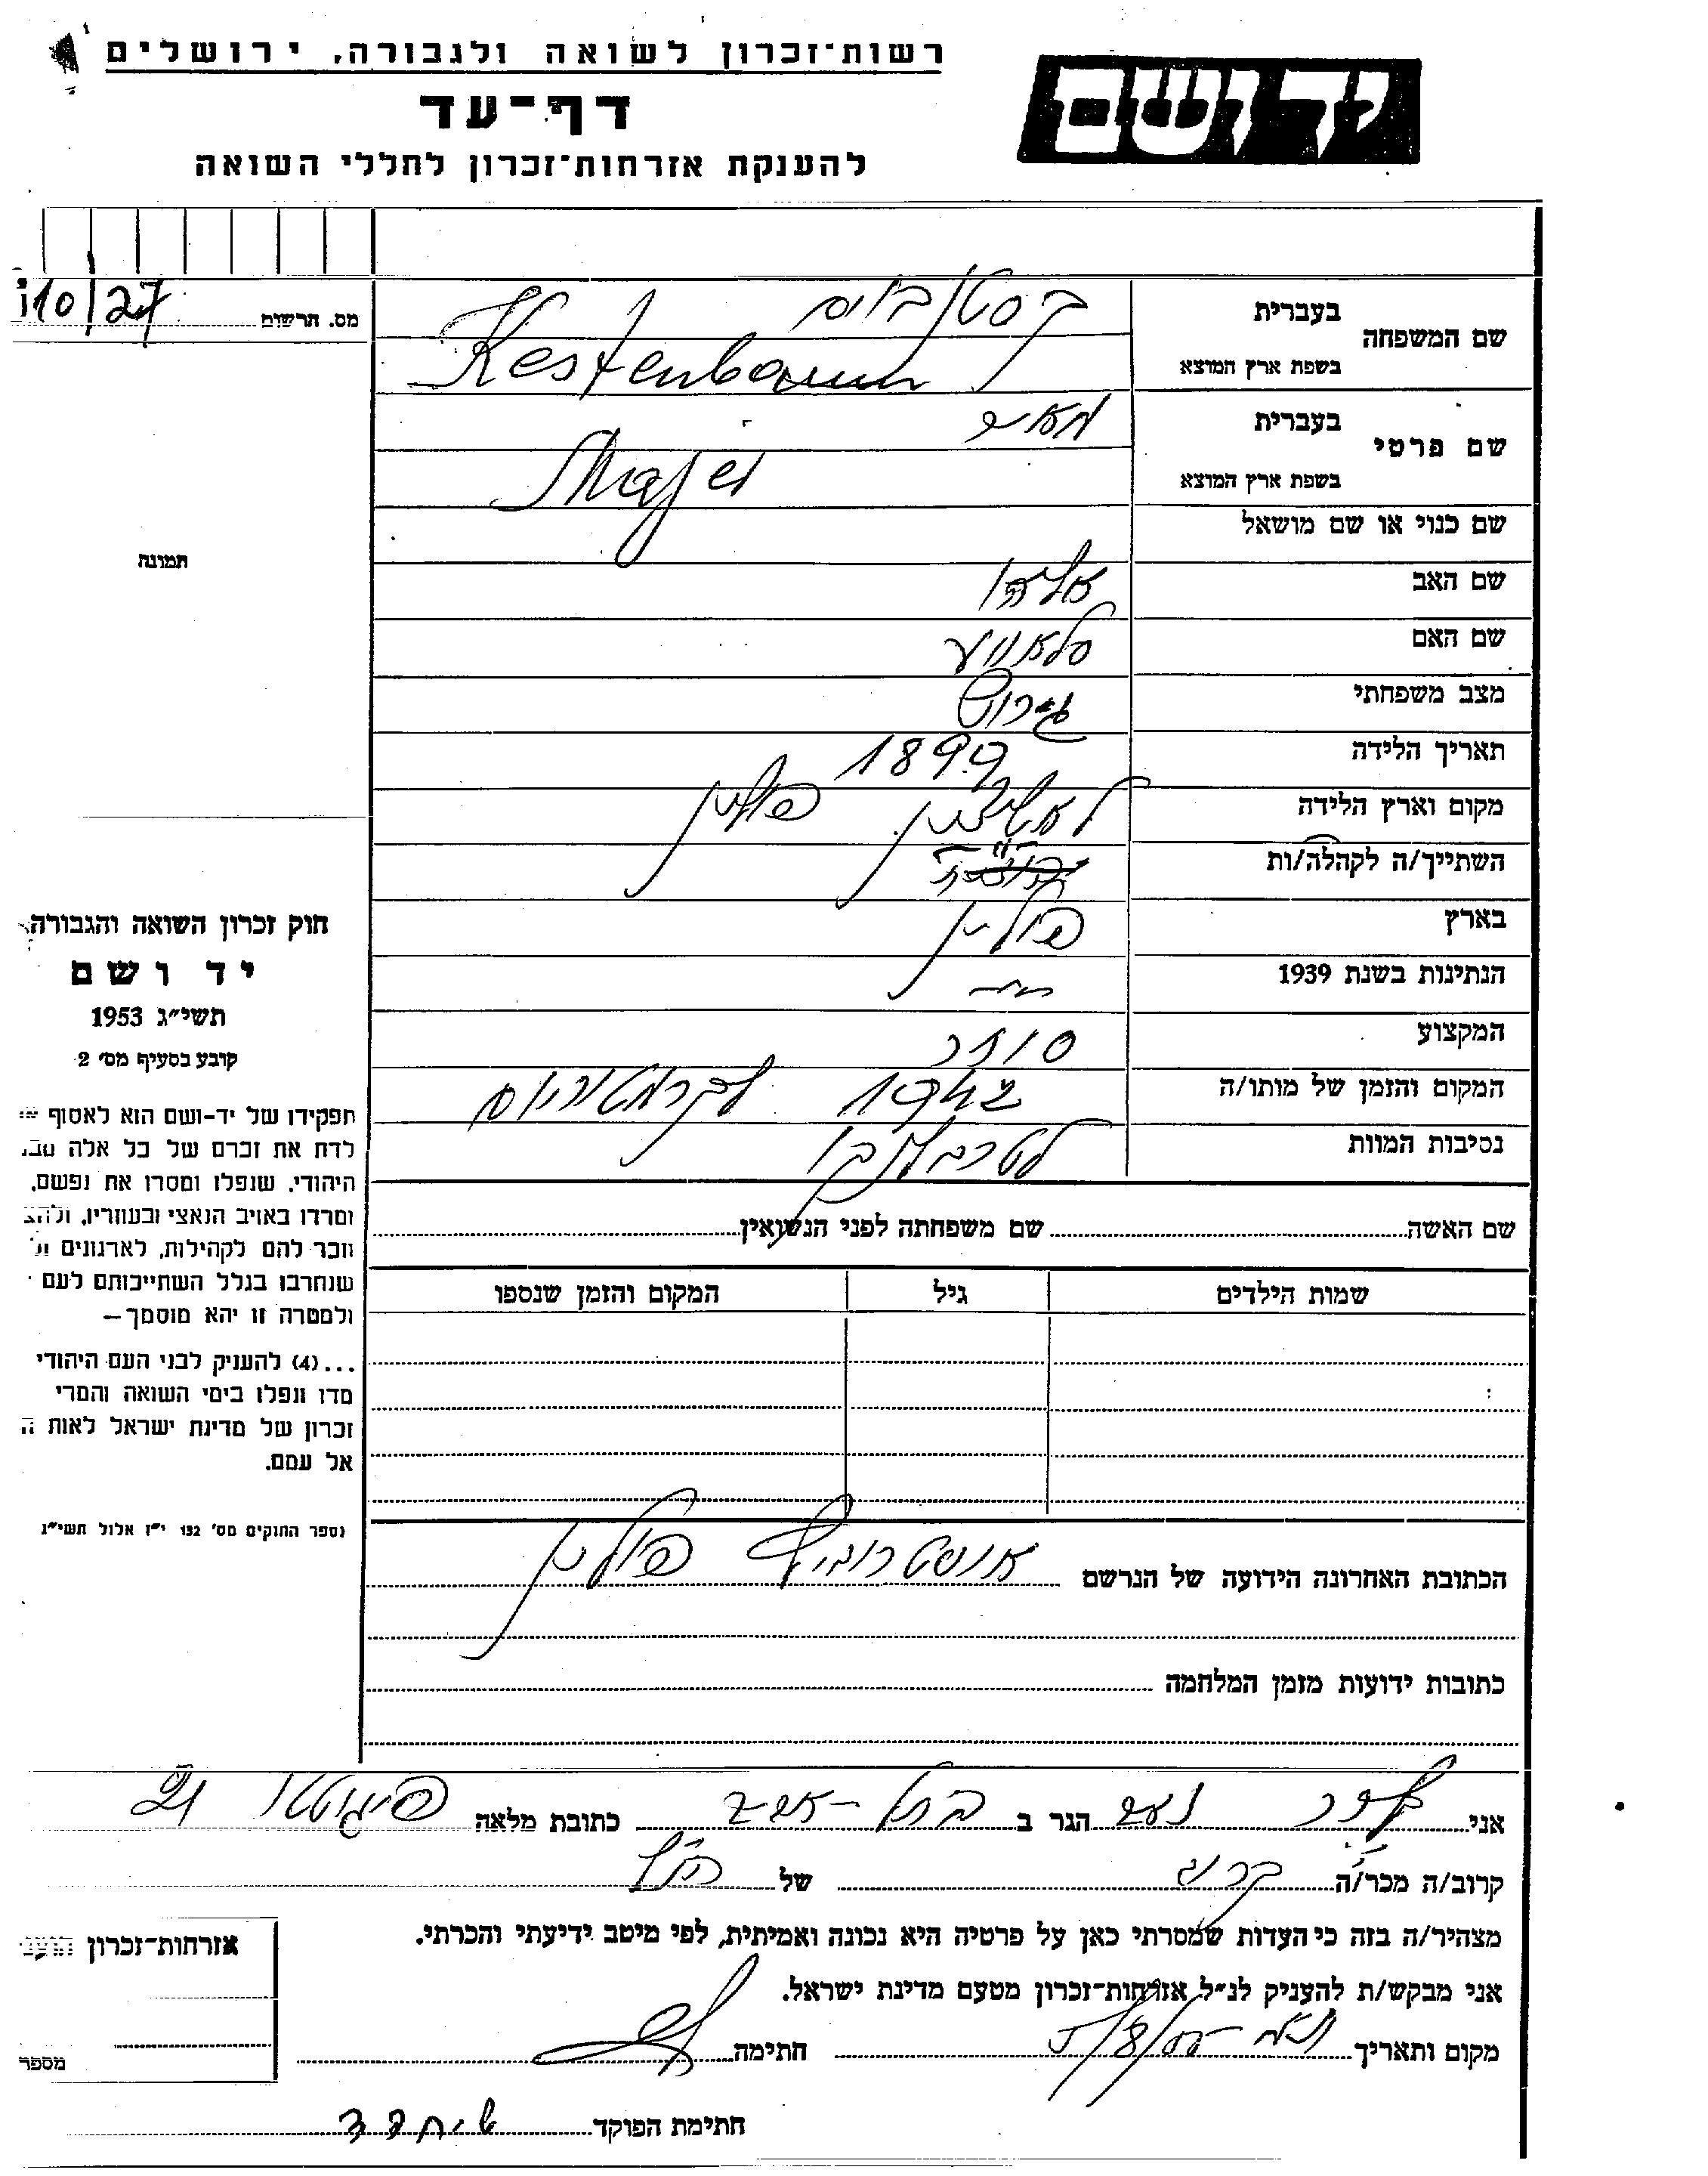 רשות־זכרון לשואה ולגבורה, ירושלים
יד ושם
דף־עד
להענקת אזרחות־זכרון לחללי השואה
מס. תרשום
שם המשפחה
בעברית
קסטנבוים
בשפת ארץ המוצא
Kestenbaum
שם פרטי
בעברית
מאיר
בשפת ארץ המוצא
Majer
שם כנוי או שם מושאל
תמונה
שם האב
אליהו
שם האם
סלאווע
מצב משפחתי
גירוש
תאריך הלידה 1899
מקום וארץ הלידה פולין
השתייך/ה לקהלה/ות
בארץ פולין
הנתינות בשנת 1939
המקצוע סוחר
המקום והזמן של מותו/ה 1942
נסיבות המוות
שם האשה שם משפחתה לפני הנשואין
שמות הילדים גיל המקום והזמן שנספו
חוק זכרון השואה והגבורה
יד ושם
תשי״ג 1953
קובע בסעיף מס׳ 2
תפקידו של יד-ושם הוא לאסוף
לדת את זכרם של כל אלה
היהודי, שנפלו ומסרו את נפשם,
ומרדו באויב הנאצי ובעוזריו,
וזכר להם לקהילות, לארגונים
שנחרבו בגלל השתייכותם לעם
ולמטרה זו יהא מוסמך–
...(4) להעניק לבני העם היהודי
מדו ונפלו בימי השואה והמרי
זכרון של מדינת ישראל לאות
אל עמם.
וספר החוקים מס׳ 132 י״ז אלול תשי״ג
הכתובת האחרונה הידועה של הנרשם אוסטרוביץ פולין
כתובות ידועות מזמן המלחמה
אני הגר ב כתובת מלאה
קרוב/ה מכר/ה קרוב של
מצהיר/ה בזה כי העדות שמסרתי כאן על פרטיה היא נכונה ואמיתית, לפי מיטב ידיעתי והכרתי.
אני מבקש/ת להעניק לנ״ל אזרחות־זכרון מטעם מדינת ישראל.
מקום ותאריך חתימה
חתימת הפוקד
אזרחות־זכרון
מספר